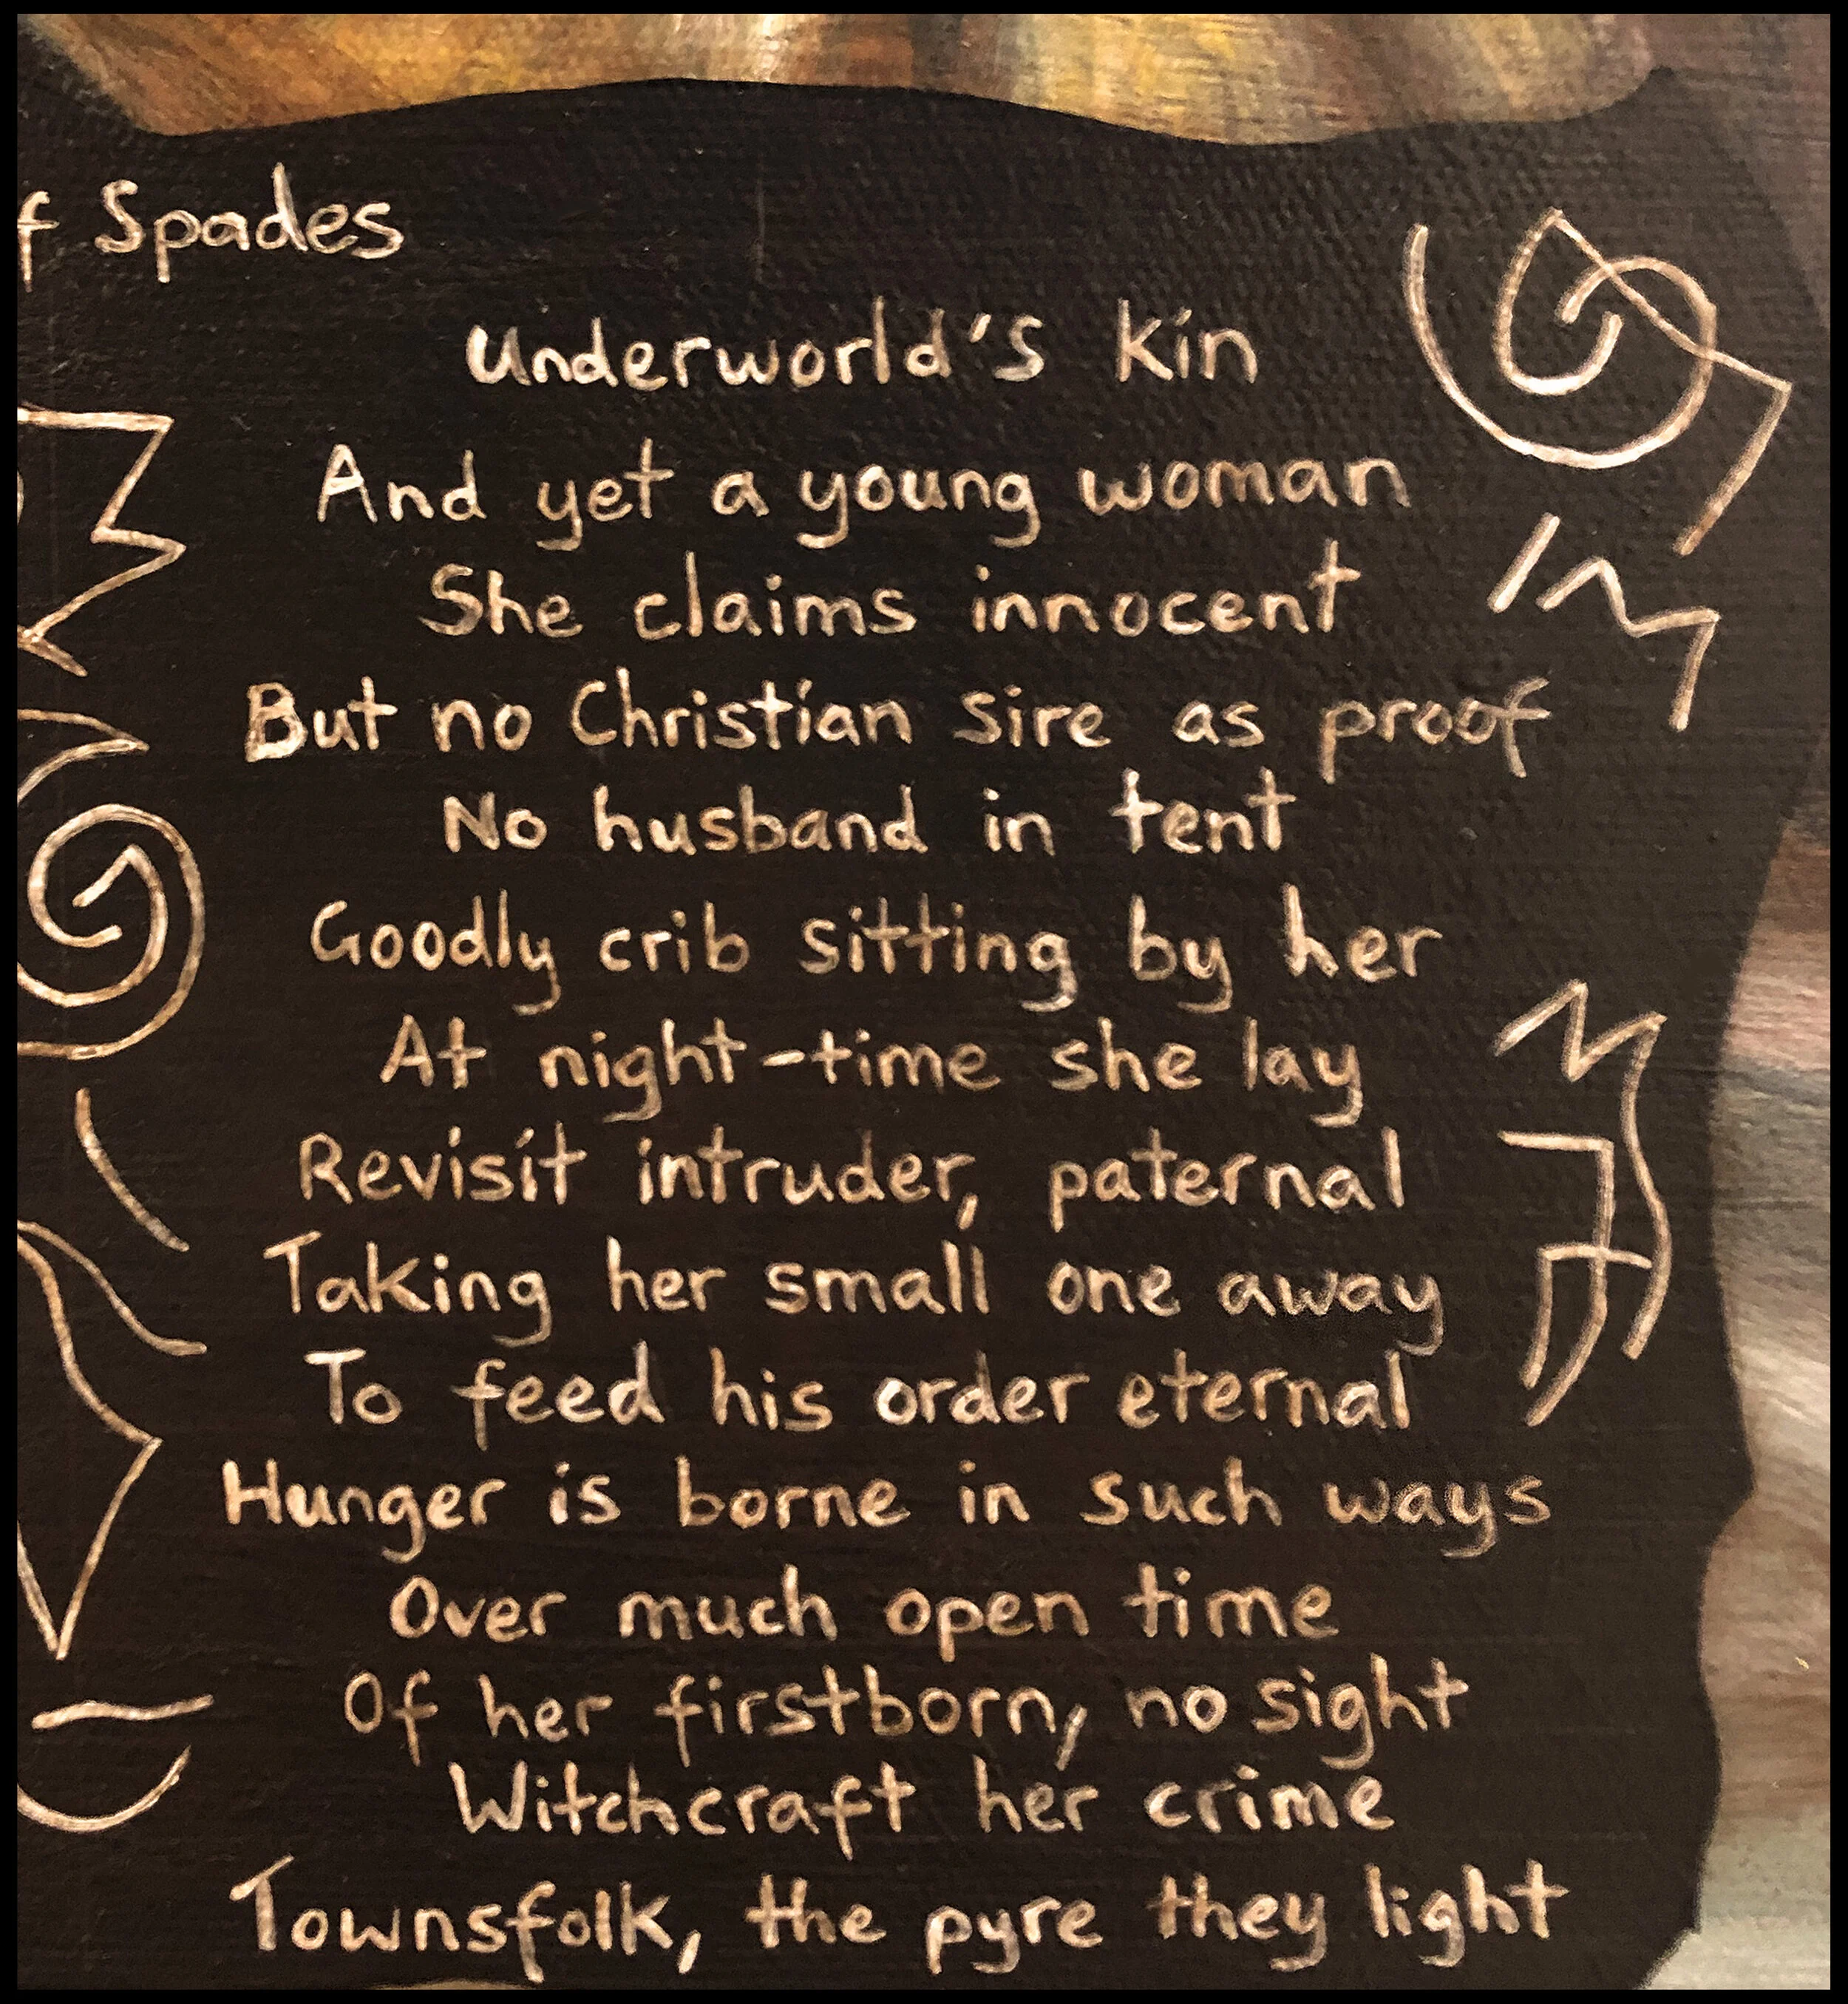 f Spades
Underworld's kin
And yet a young woman
She claims innocent
But no Christian sire as proof
No husband in tent
Goodly crib sitting by her
At night-time she lay
Revisit intruder, paternal
Taking her small one away
To feed his order eternal
Hunger is borne in such ways
Over much open time
Of her firstborn, no sight
Witchcraft her crime
Townsfolk, the pyre they light